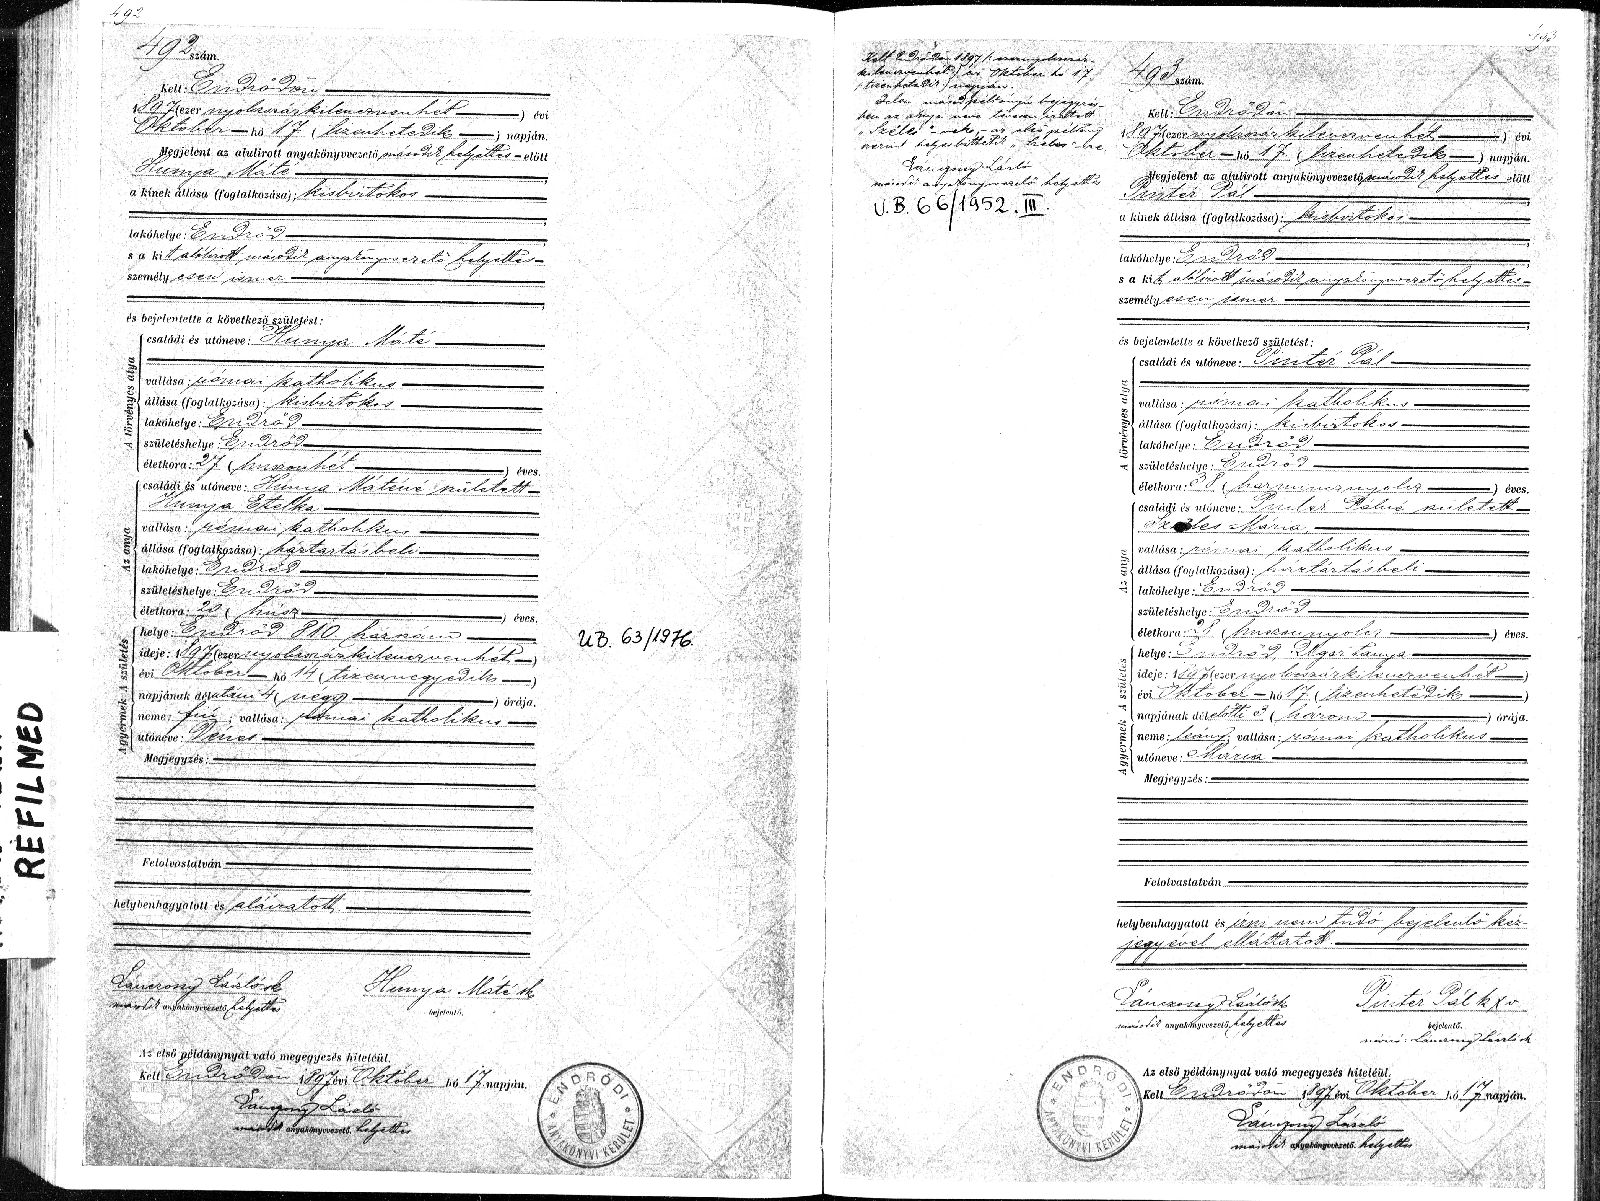 492
492 szám.
Kelt: Endrődön
1897 (ezer nyolcszázkilenczvenhét) évi
Október hó 17 (tizenhetedik) napján.
Megjelent az alulirott anyakönyvvezető második helyettes előtt
Hunya Máté
a kinek állása (foglalkozása): kisbirtokos
lakóhelye: Endrőd
s a kit alólirott második anyakönyvvezető helyettes
személyesen ismer
és bejelentette a következő születést:
A törvényes atya
családi és utóneve: Hunya Máté
vallása: római katholikus
állása (foglalkozása): kisbirtokos
lakóhelye: Endrőd
születéshelye: Endrőd
életkora: 27 (huszonhét) éves.
Az anya
családi és utóneve: Hunya Máténé született
Hunya Etelka
vallása: római katholikus
állása (foglalkozása): háztartásbeli
lakóhelye: Endrőd
születéshelye: Endrőd
életkora: 20 (húsz) éves.
A gyermek A születés
helye: Endrőd 810 házszám
ideje: 1897 (ezer nyolcszázkilenczvenhét)
évi Október hó 14 (tizennegyedik)
napjának délutáni 4 (négy) órája.
neme: fiú; vallása: római katholikus
utóneve: Vencs
Megjegyzés:
Felolvastatván
helybenhagyatott és aláiratott
Lánczony László sk
második anyakönyvvezető helyettes
Hunya Máté sk
bejelentő.
Az első példánynyal való megegyezés hiteléül.
Kelt Endrődön 1897 évi Október hó 17 napján.
Lánczony László
második anyakönyvvezető helyettes
ENDRŐDI
ANYAKÖNYVI KERÜLET
UB. 63/1976.
REFILMED
493
Kelt Endrődön 1897 (ezernyolcszáz-
kilenczvenhét) évi Október hó 17
(tizenhetedik) napján.
Jelen másodpéldányú bejegyzés-
ben az anya neve
Lánczony László
második anyakönyvvezető helyettes
U.B. 66/1952. III.
493 szám.
Kelt: Endrődön
1897 (ezer nyolcszázkilenczvenhét) évi
Október hó 17 (tizenhetedik) napján.
Megjelent az alulirott anyakönyvvezető második helyettes előtt
Pintér Pál
a kinek állása (foglalkozása): kisbirtokos
lakóhelye: Endrőd
s a kit alólirott második anyakönyvvezető helyettes
személyesen ismer
és bejelentette a következő születést:
A törvényes atya
családi és utóneve: Pintér Pál
vallása: római katholikus
állása (foglalkozása): kisbirtokos
lakóhelye: Endrőd
születéshelye: Endrőd
életkora: 38 (harmincznyolcz) éves.
Az anya
családi és utóneve: Pintér Pálné született
Mária
vallása: római katholikus
állása (foglalkozása): háztartásbeli
lakóhelye: Endrőd
születéshelye: Endrőd
életkora: 28 (huszonnyolcz) éves.
A gyermek A születés
helye: Endrőd, Ugar tanya
ideje: 1897 (ezer nyolcszázkilenczvenhét)
évi Október hó 17 (tizenhetedik)
napjának délelőtti 3 (három) órája.
neme: leány; vallása: római katholikus
utóneve: Mária
Megjegyzés:
Felolvastatván
helybenhagyatott és írni nem tudó bejelentő kéz-
jegyével elláttatott
Lánczony László sk
második anyakönyvvezető helyettes
Pintér Pál k x v
bejelentő.
névíró: Lánczony László sk
Az első példánynyal való megegyezés hiteléül.
Kelt Endrődön 1897 évi Október hó 17 napján.
Lánczony László
második anyakönyvvezető helyettes
ENDRŐDI
ANYAKÖNYVI KERÜLET